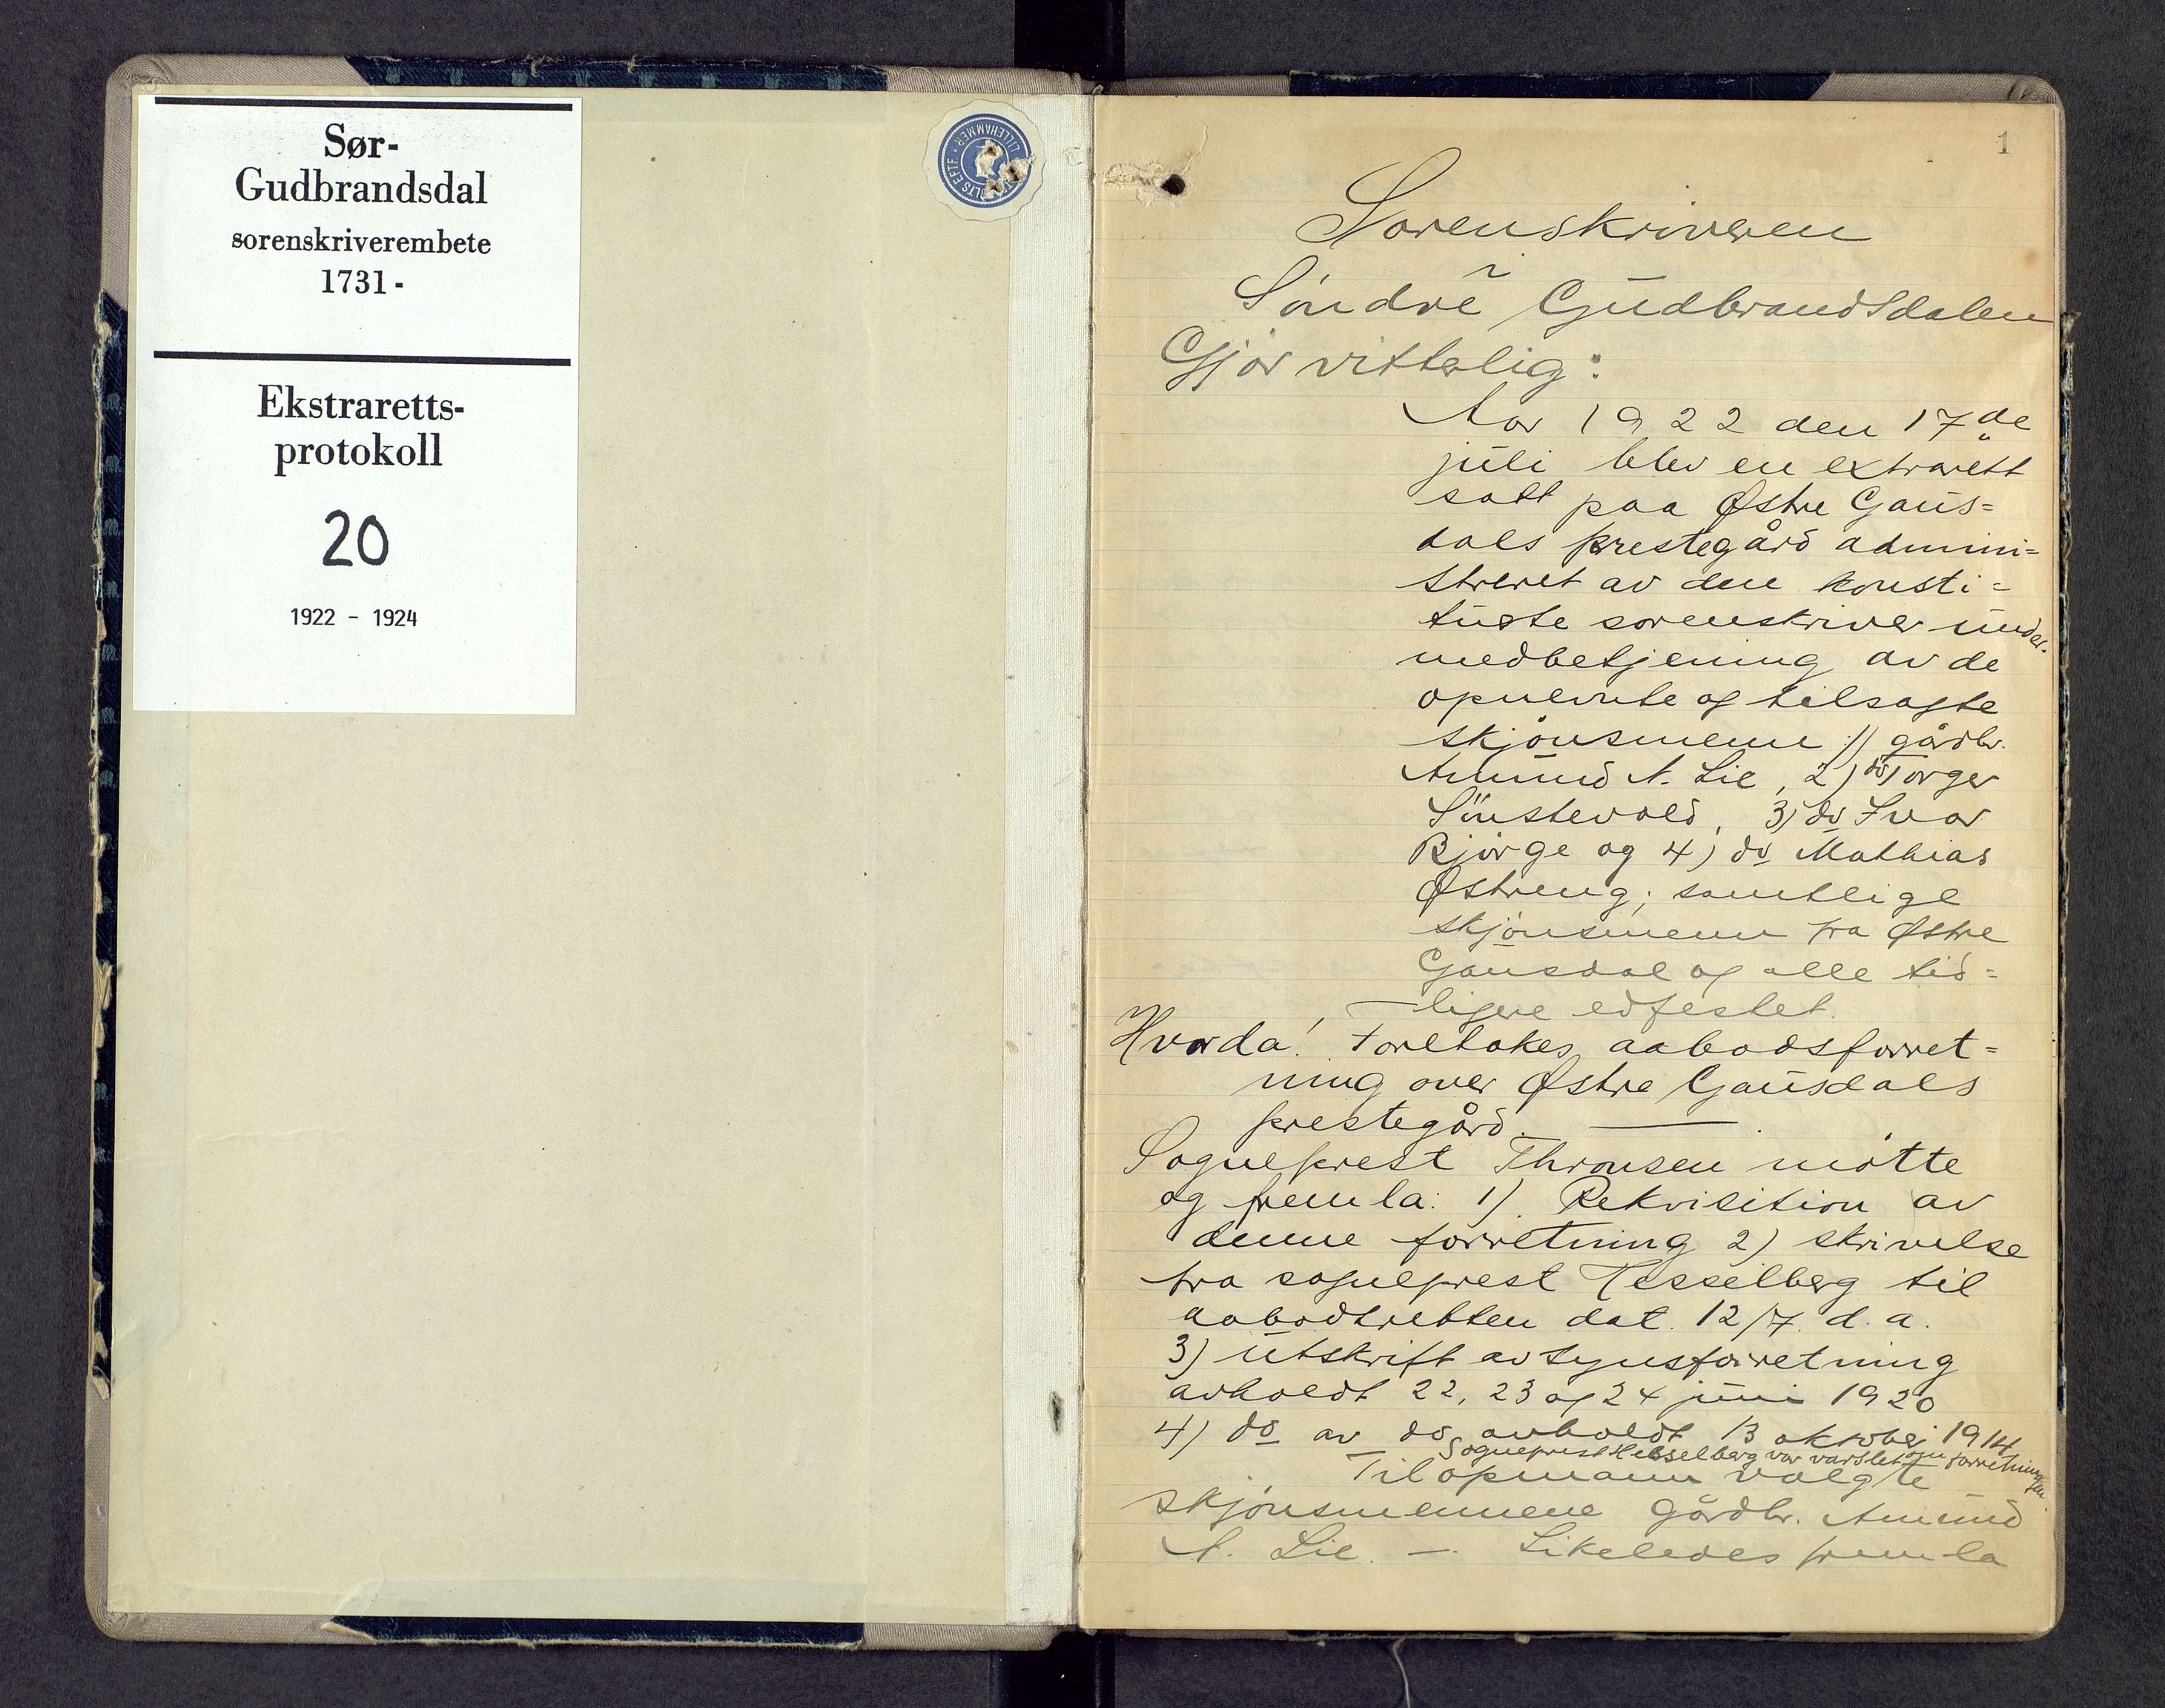 Sør-
Gudbrandsdal
sorenskriverembete
1731-
Ekstraretts-
protokoll
20
1922 - 1924
LILLEHAMMER
1
Sorenskriveren
i
Söndre Gudbrandsdalen
Gjör vitterlig:
Aar 1922 den 17de
juli blev en extrarett
satt paa Østre Gaus=
dals prestegård admini=
streret av den konsti=
tuerte sorenskriver under
medbetjening av de
opnevnte og tilsagte
skjönsmenn: 1) gårdbr.
Amund A. Lie, 2) do Torger
Sönstevold, 3) do Ivar
Bjørge og 4) do Mathias
Østreng; samtlige
skjönsmenn fra Østre
Gausdal og alle tid=
ligere edfestet.
Hvorda! Foretokes aabodsforret=
ning over Østre Gausdals
prestegård.
Sogneprest Thronsen mötte
og fremla: 1). Rekvisition av
denne forretning 2) skrivelse
fra sogneprest Hesselberg til
aabodsretten dat. 12/7. d. a.
3) utskrift av synsforretning
avholdt 22, 23 og 24 juni 1920
4) do av do avholdt 13 oktober 1914
Sogneprest Hesselberg var varslet om forretningen.
Til opmann valgte
skjönsmennene gårdbr. Amund
A. Lie. — Likeledes fremla